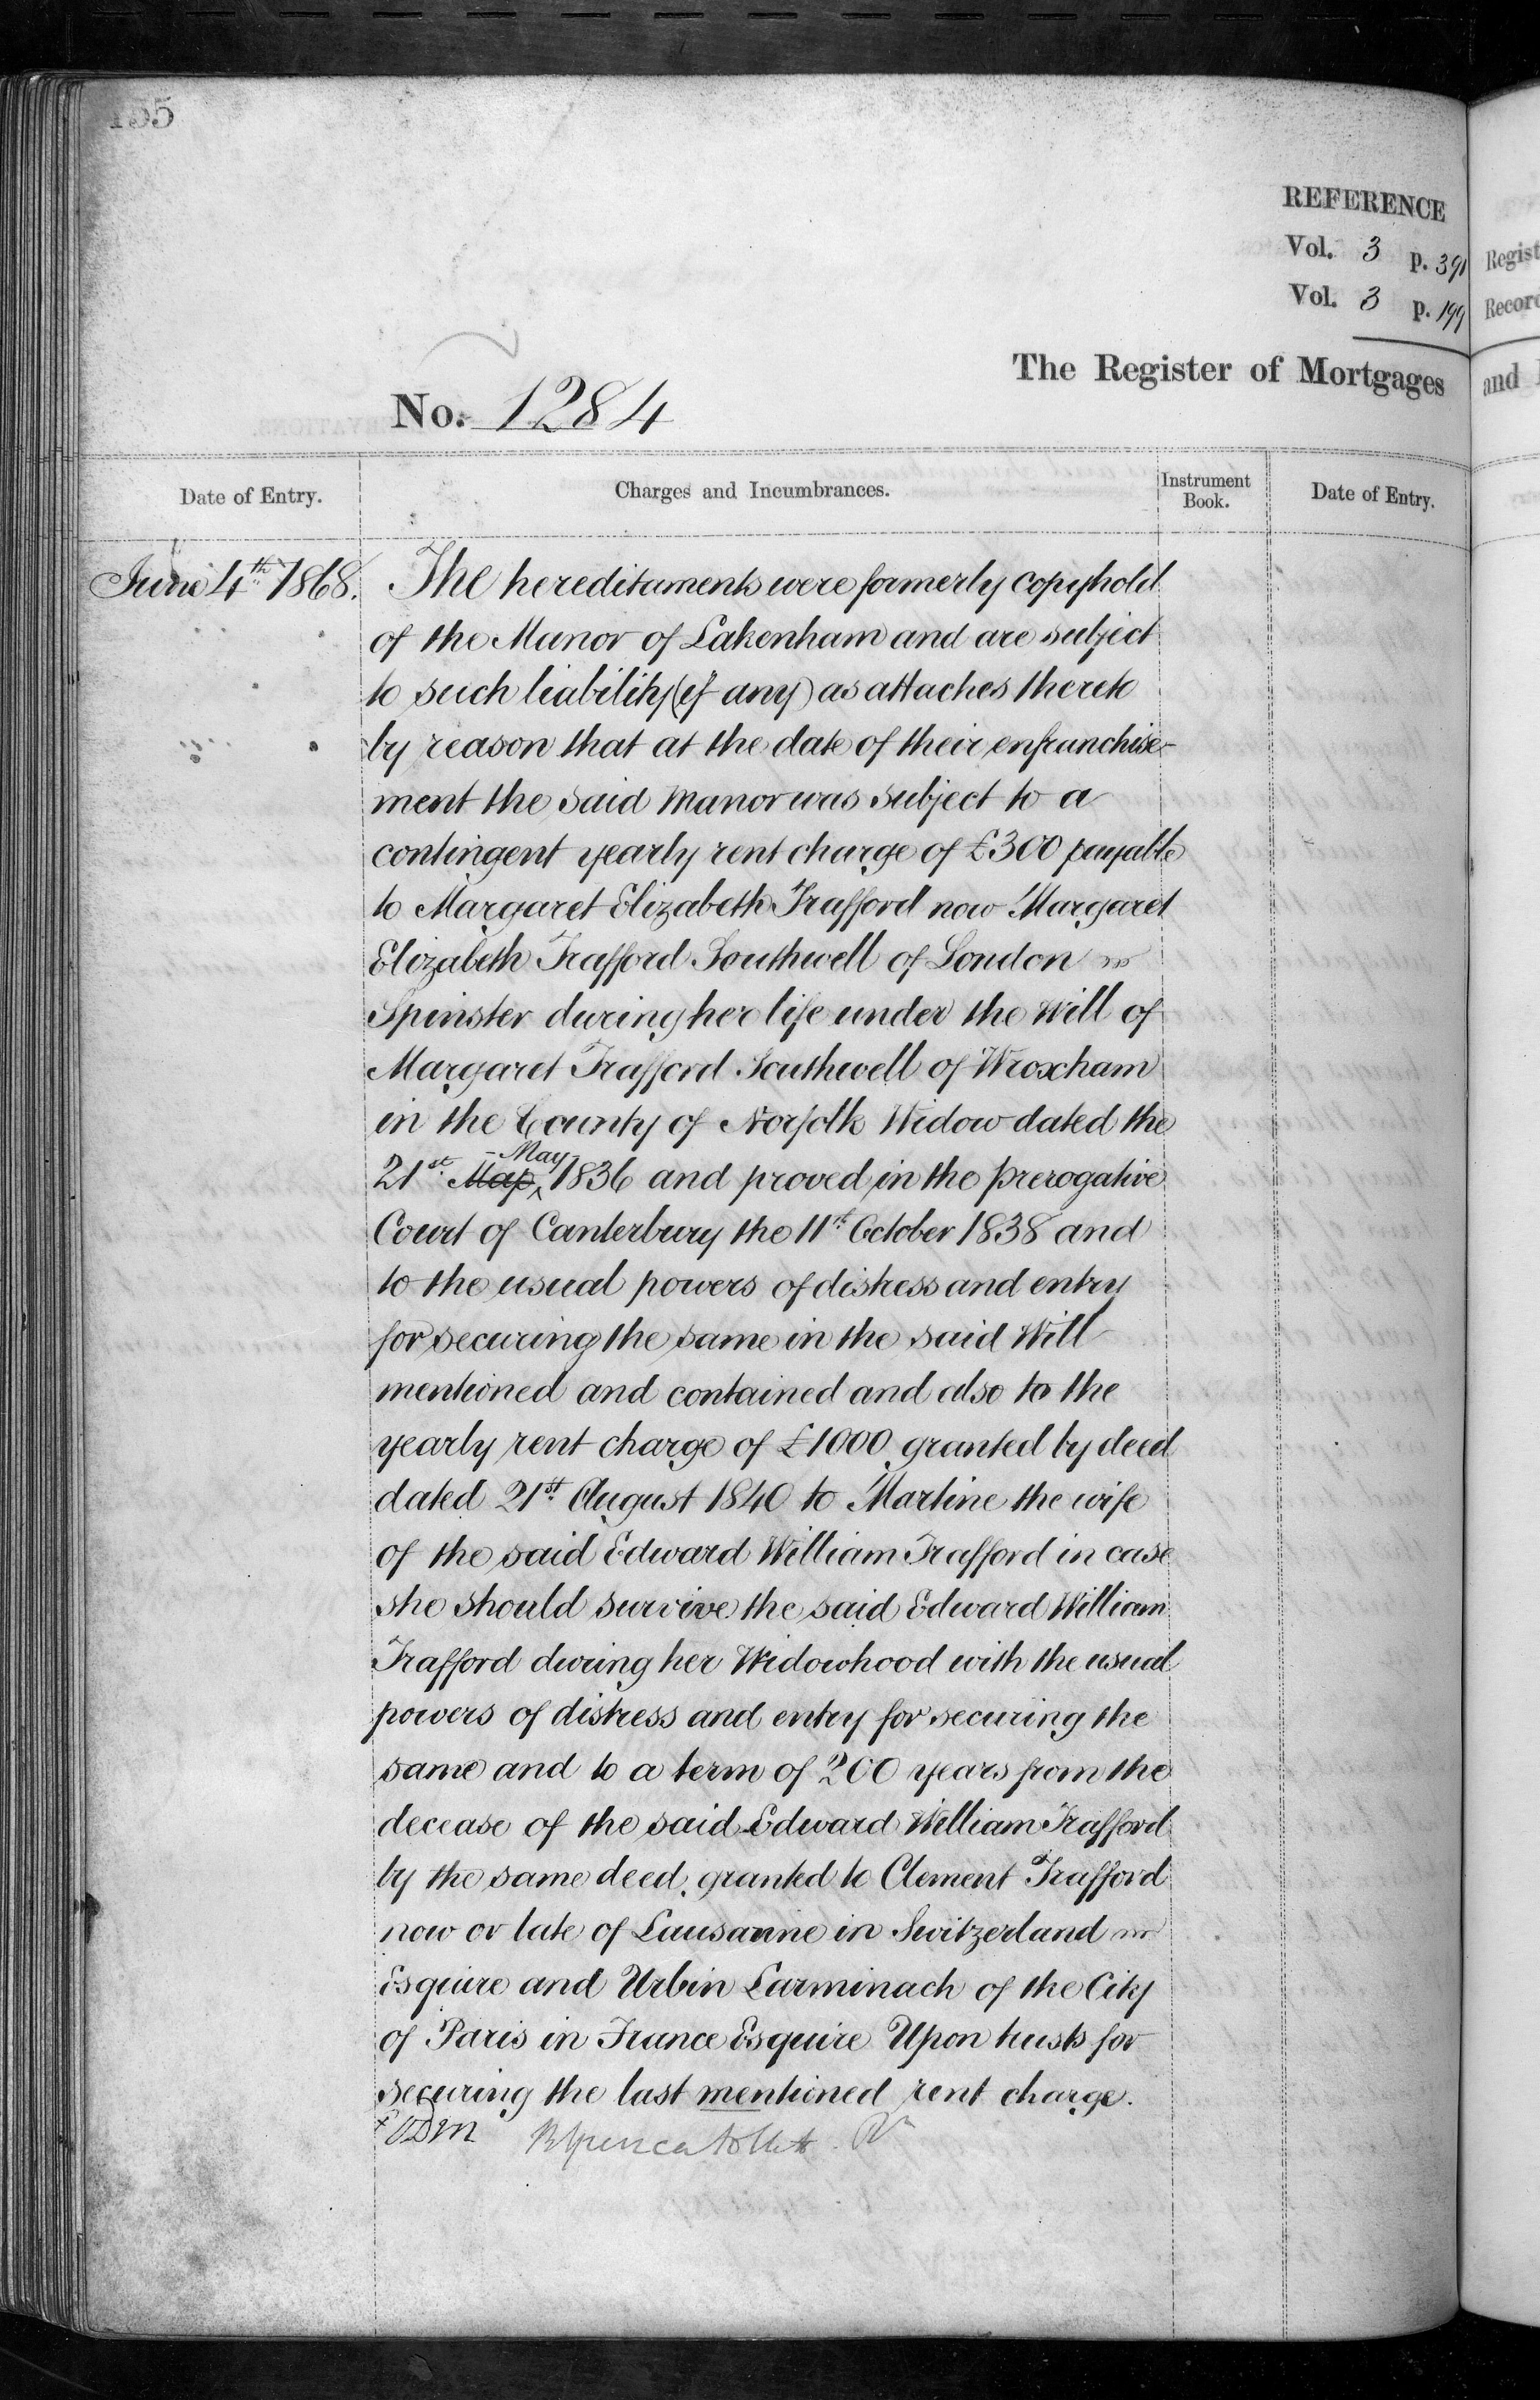 155
REFERENCE
Vol. 3 p. 391
Vol. 3 p. 199
Regist
Record
The Register of Mortgages
and
No. 1284
Date of Entry.
Charges and Incumbrances.
Instrument Book.
Date of Entry.
June 4th 1868.
The hereditaments were formerly copyhold
of the Manor of Lakenham and are subject
to such liability (if any) as attaches thereto
by reason that at the date of their enfranchise-
ment the said Manor was subject to a
contingent yearly rent charge of £300 payable
to Margaret Elizabeth Trafford now Margaret
Elizabeth Trafford Southwell of London
Spinster during her life under the Will of
Margaret Trafford Southwell of Wroxham
in the County of Norfolk Widow dated the
21st Map May 1836 and proved in the prerogative
Court of Canterbury the 11th October 1838 and
to the usual powers of distress and entry
for securing the same in the said Will
mentioned and contained and also to the
yearly rent charge of £1000 granted by deed
dated 21st August 1840 to Martine the wife
of the said Edward William Trafford in case
she should survive the said Edward William
Trafford during her Widowhood with the usual
powers of distress and entry for securing the
same and to a term of 200 years from the
decease of the said Edward William Trafford
by the same deed granted to Clement Trafford
now or late of Lausanne in Switzerland
Esquire and Urbin Larminach of the City
of Paris in France Esquire Upon trusts for
securing the last mentioned rent charge.